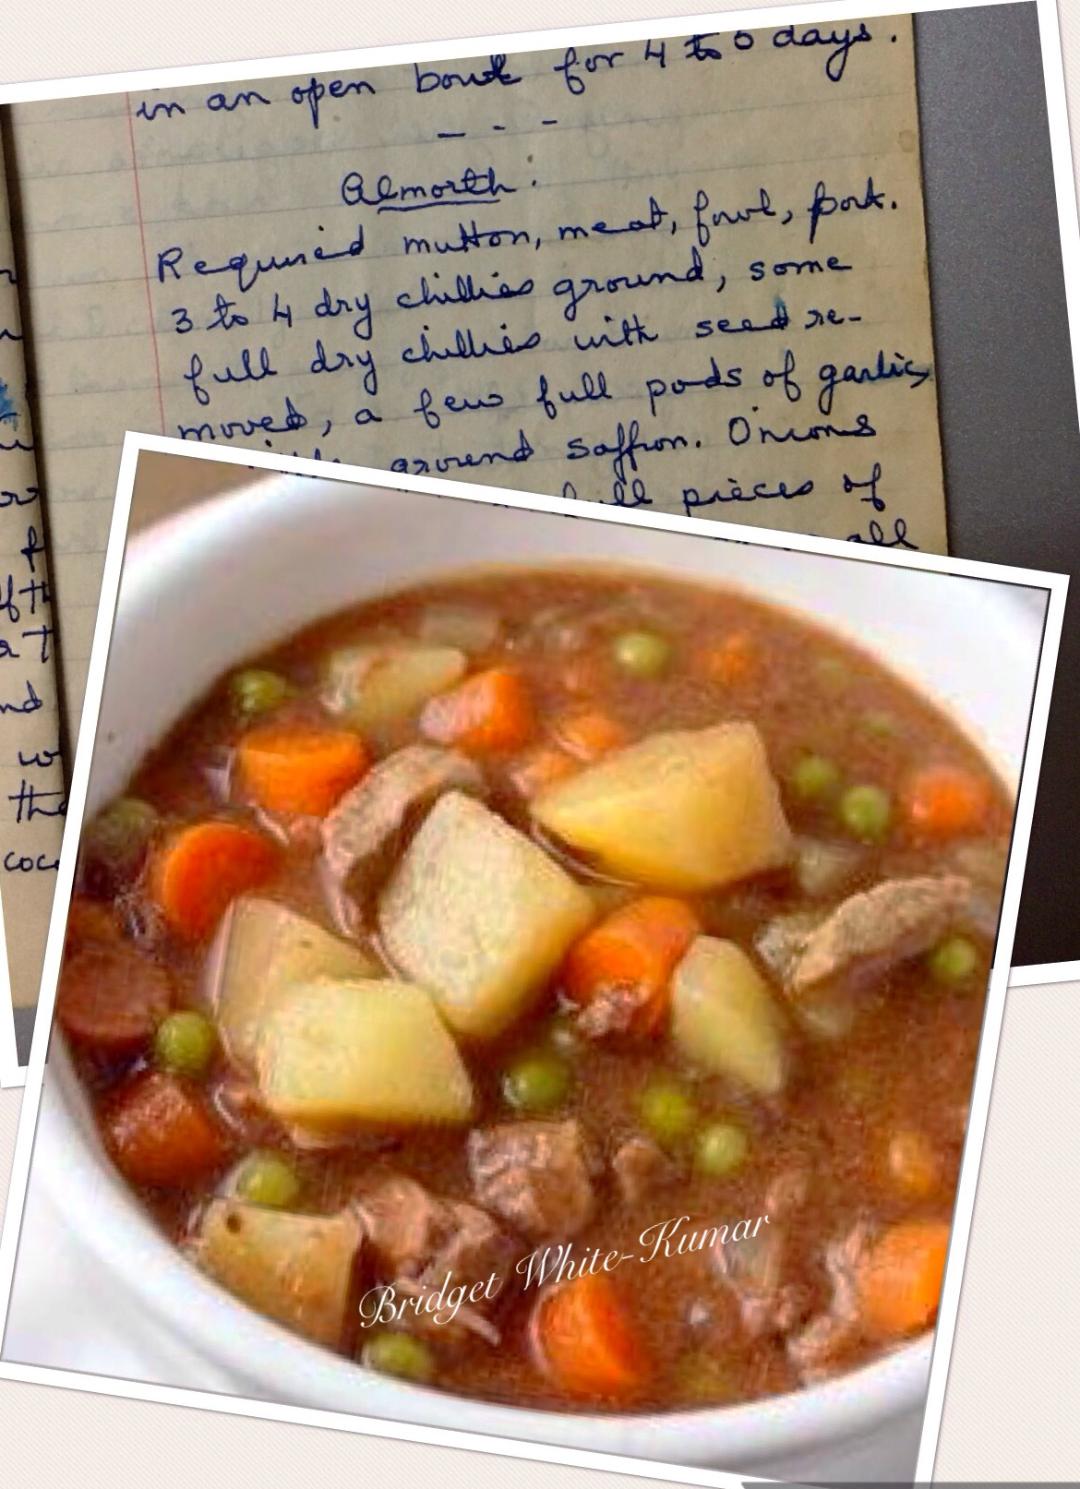 in an open bowl for 4 to 6 days.
- - -
Almorth.
Required mutton, meat, fowl, pork.
3 to 4 dry chillies ground, some
full dry chillies with seed re-
moved, a few full pods of garlic,
ground saffron. Onions
full pieces of
all
w
the
coco
Bridget White-Kumar